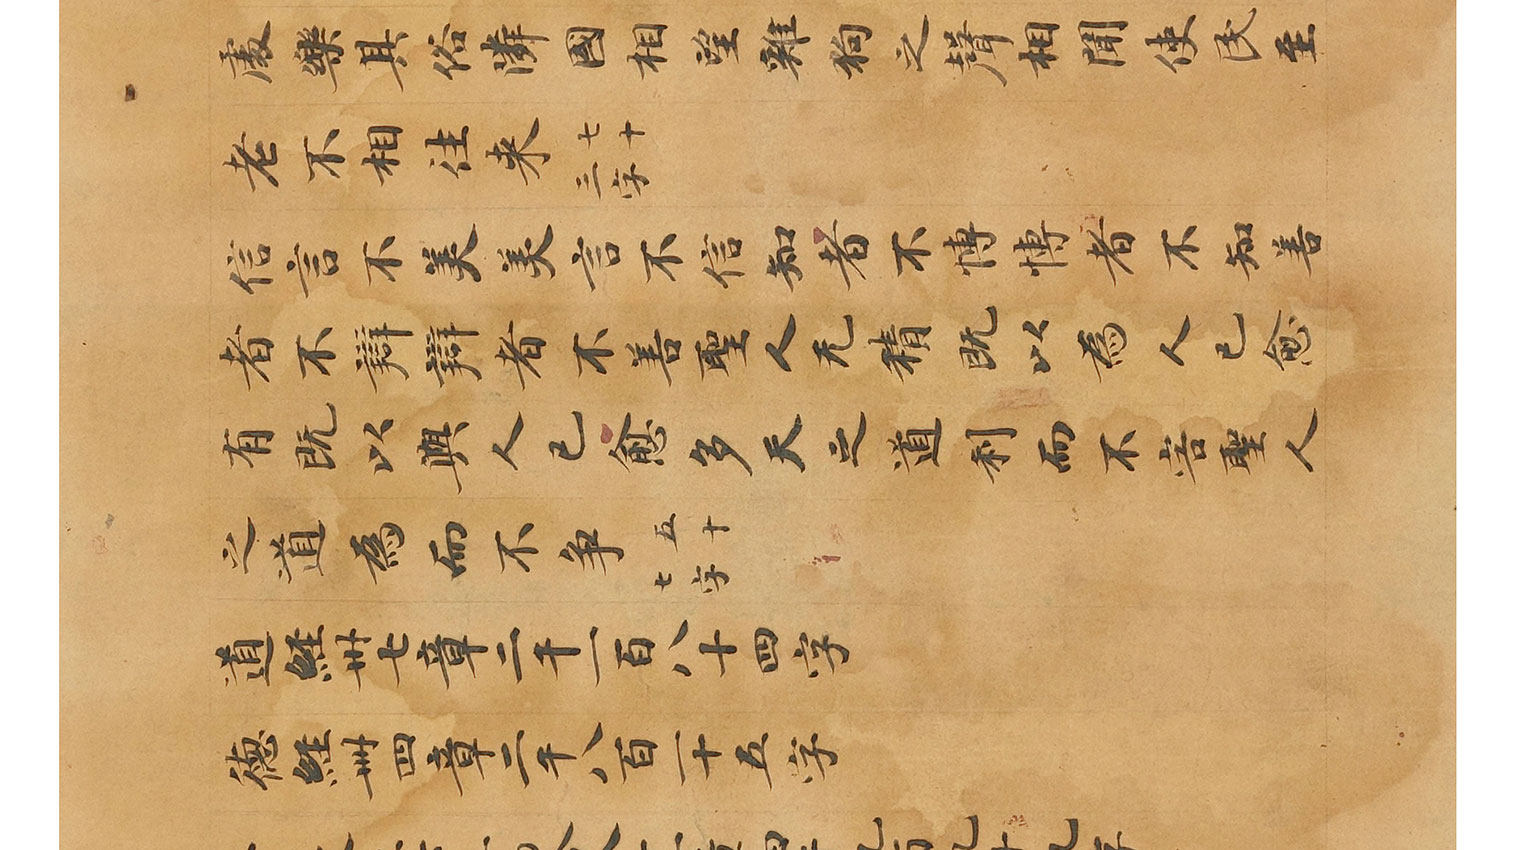 處樂其俗隣國相望雞狗之聲相聞使民至
老不相往来七十三字
信言不美美言不信知者不博博者不知善
者不辯辯者不善聖人无積既以為人已愈
有既以與人已愈多天之道利而不害聖人
之道為而不争五十七字
道經卅七章二千一百八十四字
德經卌四章二千八百一十五字